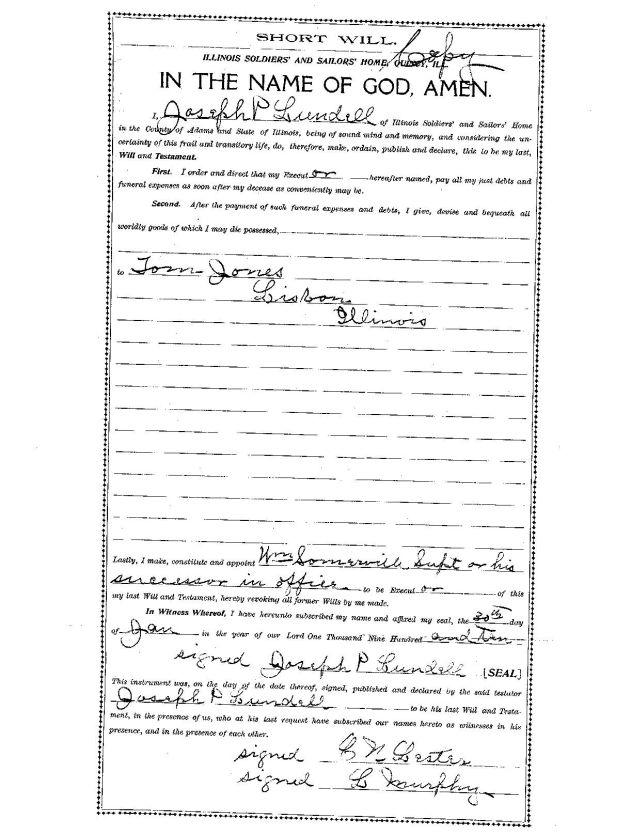 SHORT WILL.
Copy
ILLINOIS SOLDIERS' AND SAILORS' HOME, QUINCY, ILL.
IN THE NAME OF GOD, AMEN.
I, Joseph P Lundell of Illinois Soldiers' and Sailors' Home
in the County of Adams and State of Illinois, being of sound mind and memory, and considering the un-
certainty of this frail and transitory life, do, therefore, make, ordain, publish and declare, this to be my last,
Will and Testament.
First. I order and direct that my Execut or hereafter named, pay all my just debts and
funeral expenses as soon after my decease as conveniently may be.
Second. After the payment of such funeral expenses and debts, I give, devise and bequeath all
worldly goods of which I may die possessed,
to Tom Jones
Lisbon
Illinois
Lastly, I make, constitute and appoint Wm Somerville Supt or his
successor in office to be Execut or of this
my last Will and Testament, hereby revoking all former Wills by me made.
In Witness Whereof, I have hereunto subscribed my name and affixed my seal, the 30th day
of Jan in the year of our Lord One Thousand Nine Hundred and Ten
signed Joseph P Lundell [SEAL]
This instrument was, on the day of the date thereof, signed, published and declared by the said testator
Joseph P Lundell to be his last Will and Testa-
ment, in the presence of us, who at his last request have subscribed our names hereto as witnesses in his
presence, and in the presence of each other.
signed C N Lester
signed C Murphy